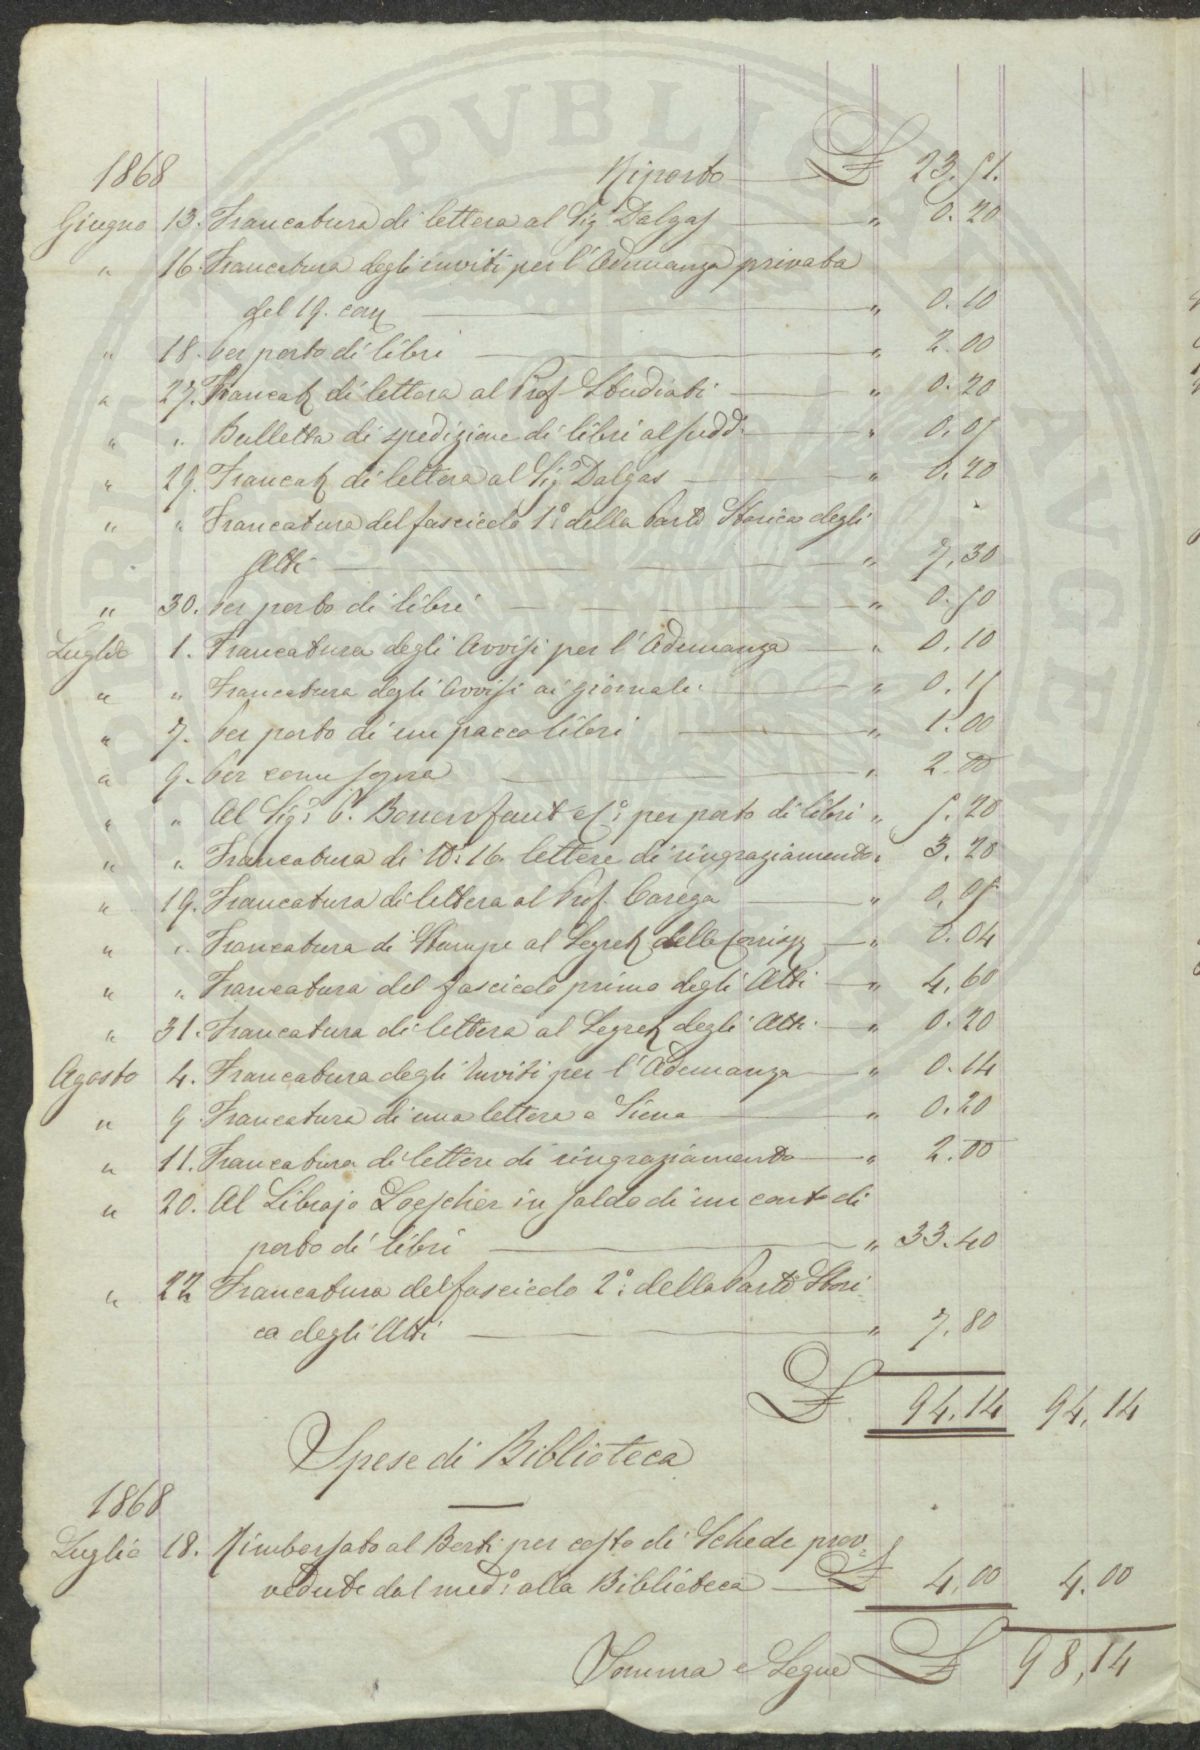 1868 Riporto £ 23.51.
Giugno 13. Francatura di lettera al Sig.r Dalgas " 0.20
" 16. Francatura degli inviti per l'Adunanza privata
del 19. corr. " 0.10
" 18. Per porto di libri " 2.00
" 27. Francat. di lettera al Prof. Studiati " 0.20
" " Bulletta di spedizione di libri al sudd.o " 0.05
" 29. Francat. di lettera al Sig.r Dalgas " 0.20
" " Francatura del fascicolo 1.o della Parte Storica degli
Atti " 7,30
" 30. Per porto di libri " 0.50
Luglio 1. Francatura degli Avvisi per l'Adunanza " 0.10
" " Francatura degli Avvisi ai giornali " 0.15
" 7. Per porto di un pacco libri " 1.00
" 9. Per come sopra " 2.00
" " Al Sig.r P. e C.o per porto di libri " 5.20
" " Francatura di N.o 16 lettere di ringraziamento " 3.20
" 19. Francatura di lettera al Prof. Carega " 0,05
" " Francatura di Stampe al Segret. della Corrisp. " 0.04
" " Francatura del fascicolo primo degli Atti " 4,60
" 31. Francatura di lettera al Segret. degli Atti " 0.20
Agosto 4. Francatura degli Inviti per l'Adunanza " 0.14
" 9. Francatura di una lettera a Siena " 0.20
" 11. Francatura di lettere di ringraziamento " 2.00
" 20. Al Librajo Loescher in saldo di un conto di
porto di libri " 33.40
" 22 Francatura del fascicolo 2.o della Parte Stori
ca degli Atti " 7.80
£ 94.14 94,14
Spese di Biblioteca
1868
Luglio 18. Rimborsato al Berti per costo di Schede prov=
vedute dal med.o alla Biblioteca £ 4,00 4.00
Somma e Segue £ 98,14